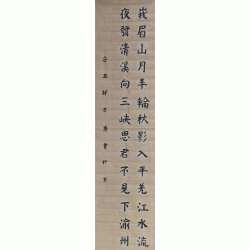 峩眉山月半輪秋影入平羌江水流
夜發清溪向三峽思君不見下渝州
辛丑 書於